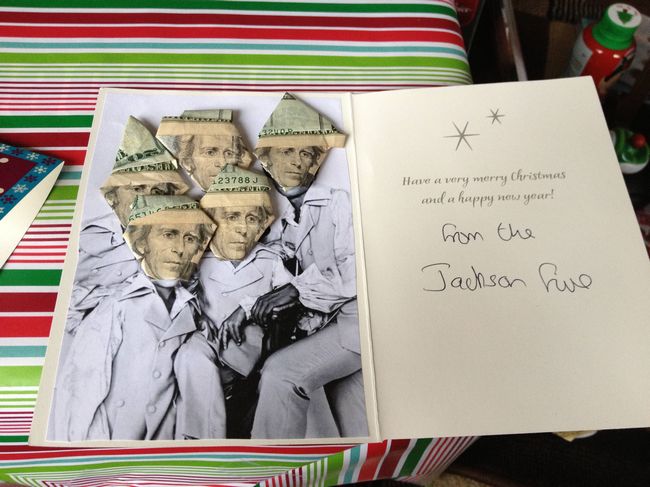 123788 J
Have a very merry Christmas
and a happy new year!
from the
Jackson five